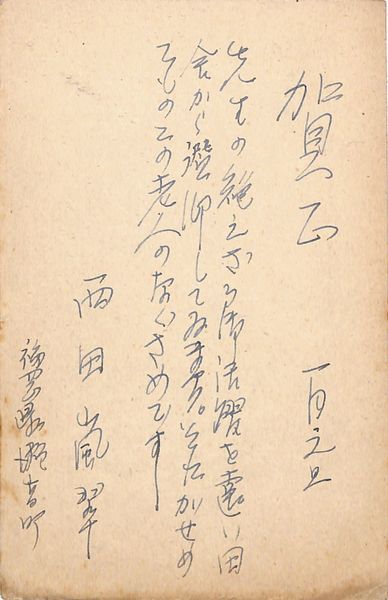 賀正
一月元旦
先生の絶えざる御活躍を遠い田
舎から遥拝して居ります。それがせめ
てもの
この老人のなぐさめです
西田嵐翠
福岡県